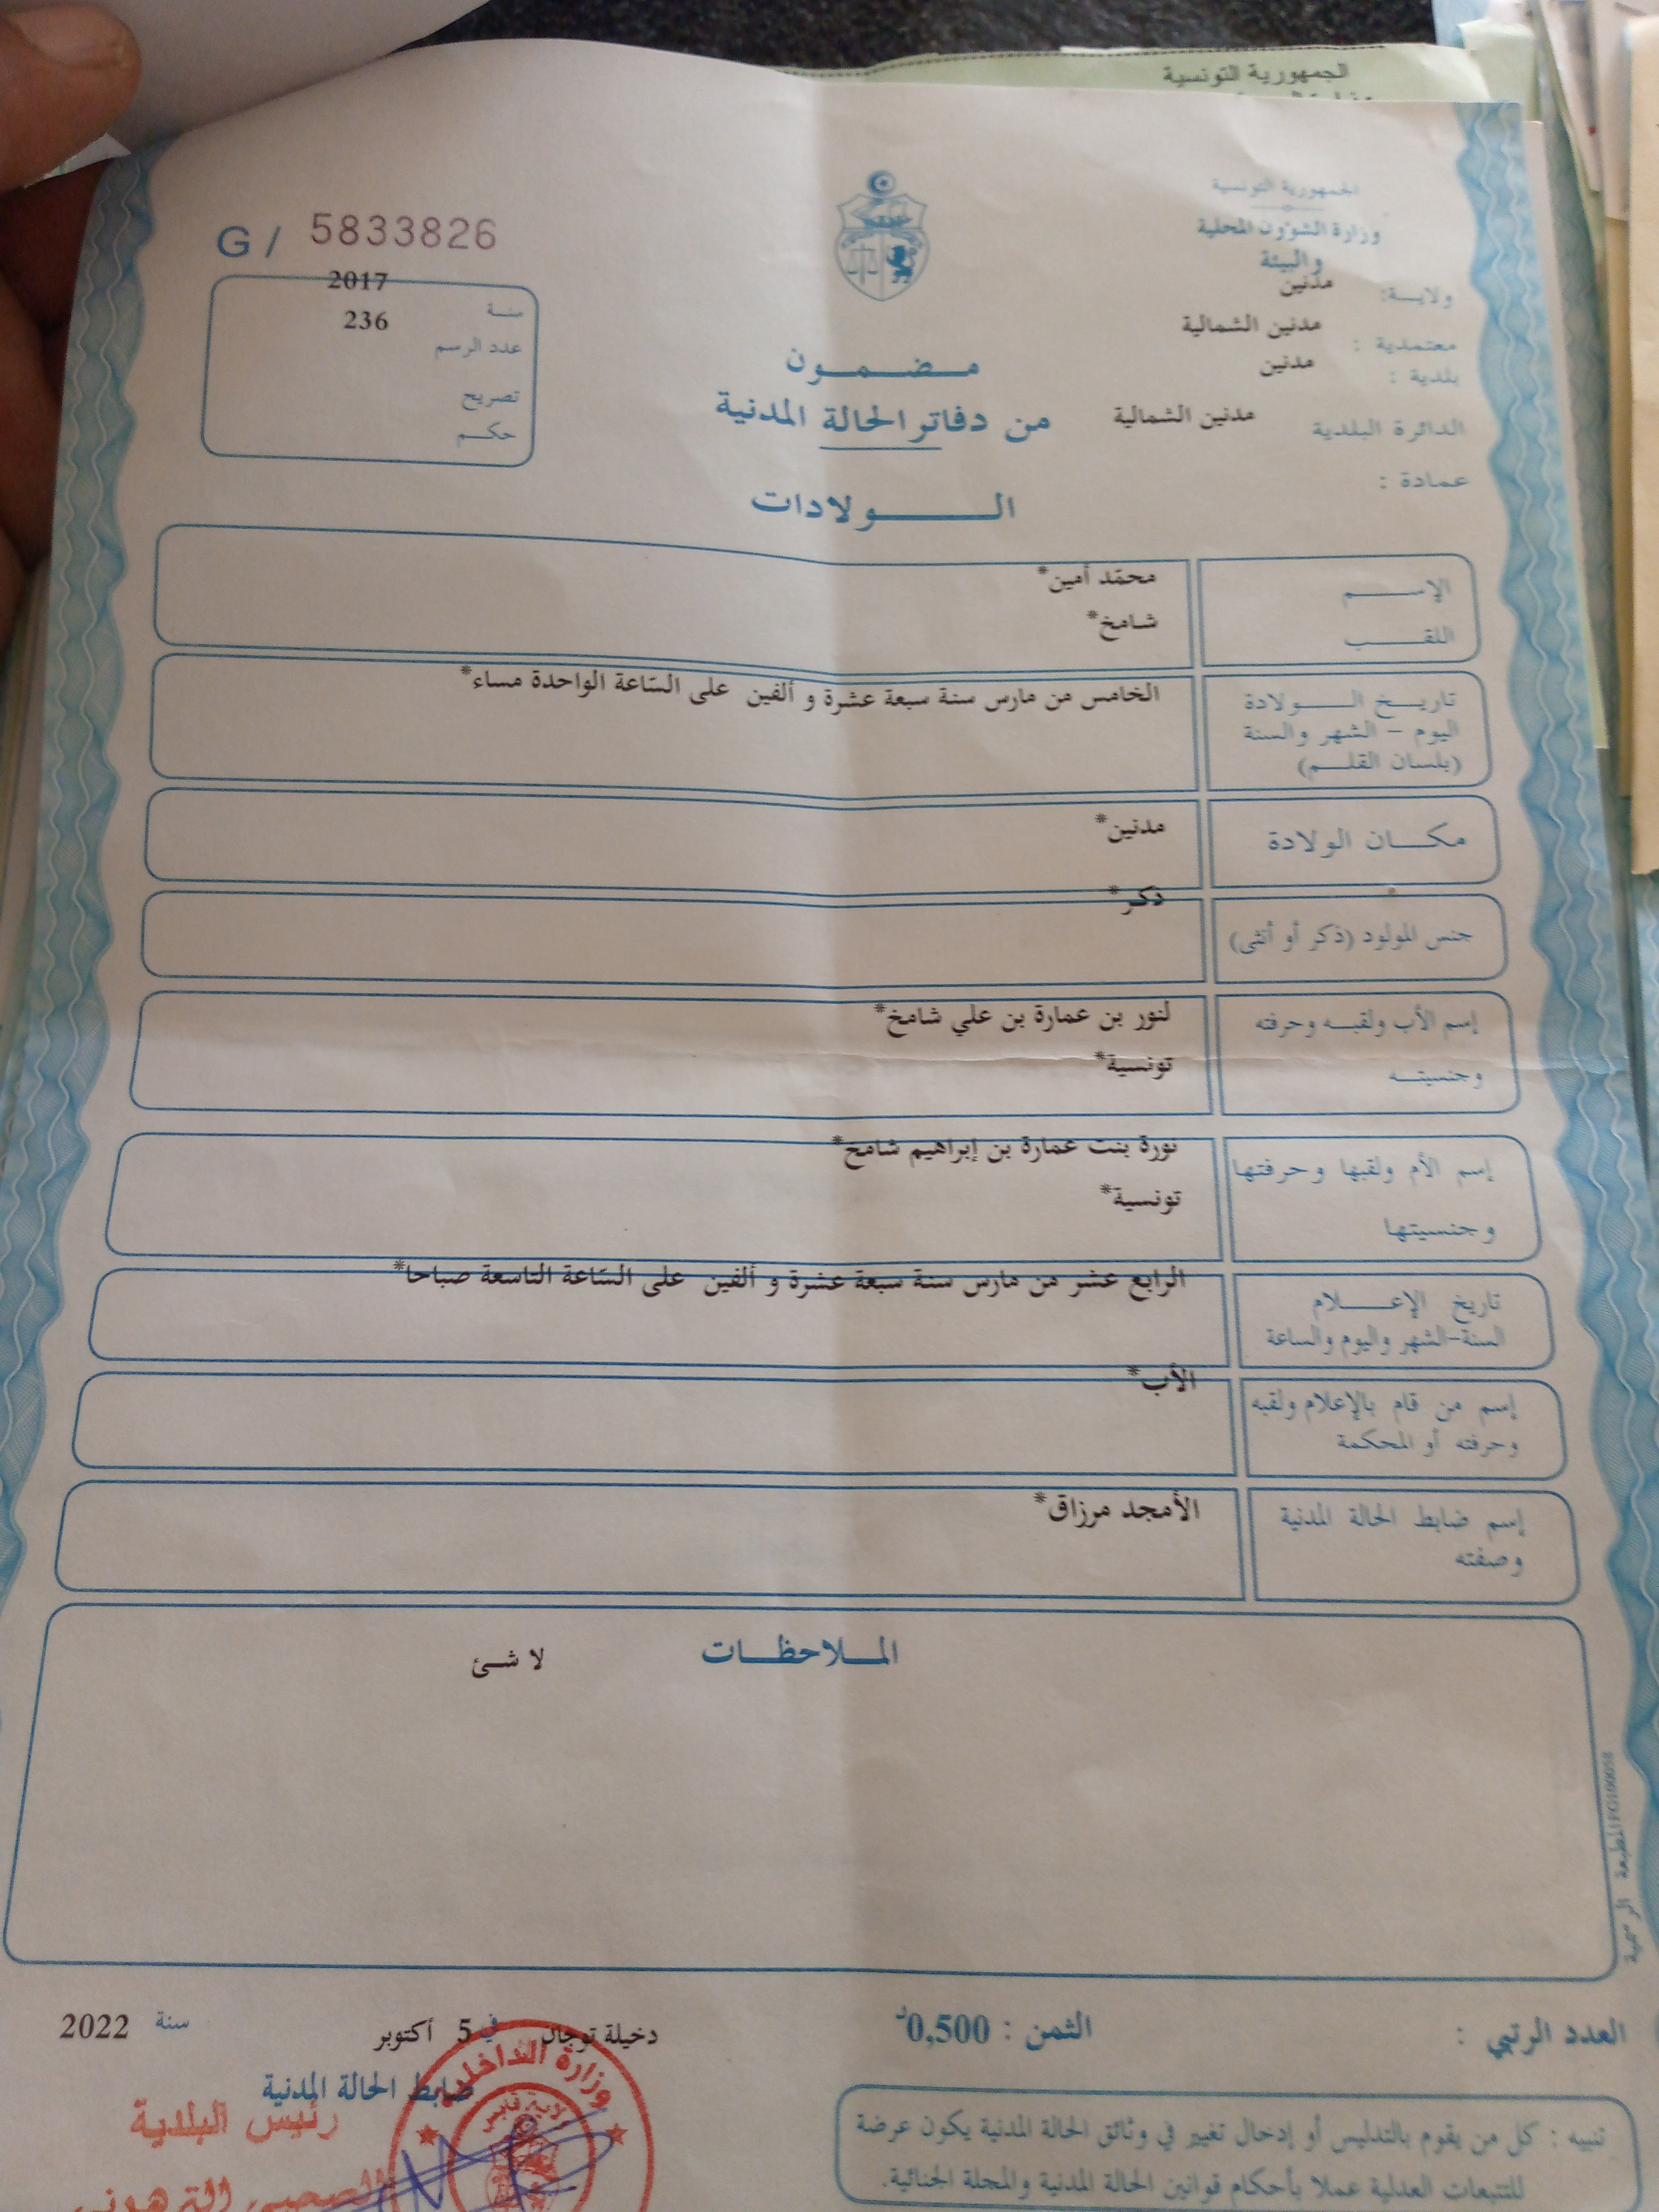 الجمهورية التونسية
الجمهورية التونسية
وزارة الشؤون المحلية
والبيئة
ولايـــة: مدنين
معتمدية : مدنين الشمالية
بلدية : مدنين
الدائرة البلدية مدنين الشمالية
عمادة :
G / 5833826
سنـة 2017
عدد الرسم 236
تصريح
حكـــم
مــضــمــون
من دفاتر الحالة المدنية
الـــــولادات
الإســـــم محمّد أمين*
اللقـــب شامخ*
تاريـــخ الـــــولادة الخامس من مارس سنة سبعة عشرة و ألفين على السّاعة الواحدة مساء*
اليوم – الشهر والسنة
(بلسان القلـــم)
مكـــان الولادة مدنين*
جنس المولود (ذكر أو أنثى) ذكر*
إسم الأب ولقبـــه وحرفته لنور بن عمارة بن علي شامخ*
وجنسيتـــه تونسية*
إسم الأم ولقبها وحرفتها نورة بنت عمارة بن إبراهيم شامخ*
وجنسيتها تونسية*
تاريخ الإعـــــلام الرابع عشر من مارس سنة سبعة عشرة و ألفين على السّاعة التاسعة صباحا*
السنة-الشهر واليوم والساعة
إسم من قام بالإعلام ولقبه الأب*
وحرفته أو المحكمة
إسم ضابط الحالة المدنية الأمجد مرزاق*
وصفته
المــلاحظــات
لا شئ
المطبعة الرسمية
العدد الرتبي :
الثمن : 0,500د
دخيلة توجان في 5 أكتوبر سنة 2022
ضابط الحالة المدنية
رئيس البلدية
وزارة الداخلية
ولاية قابس
تنبيه : كل من يقوم بالتدليس أو إدخال تغيير في وثائق الحالة المدنية يكون عرضة
للتتبعات العدلية عملا بأحكام قوانين الحالة المدنية والمجلة الجنائية.